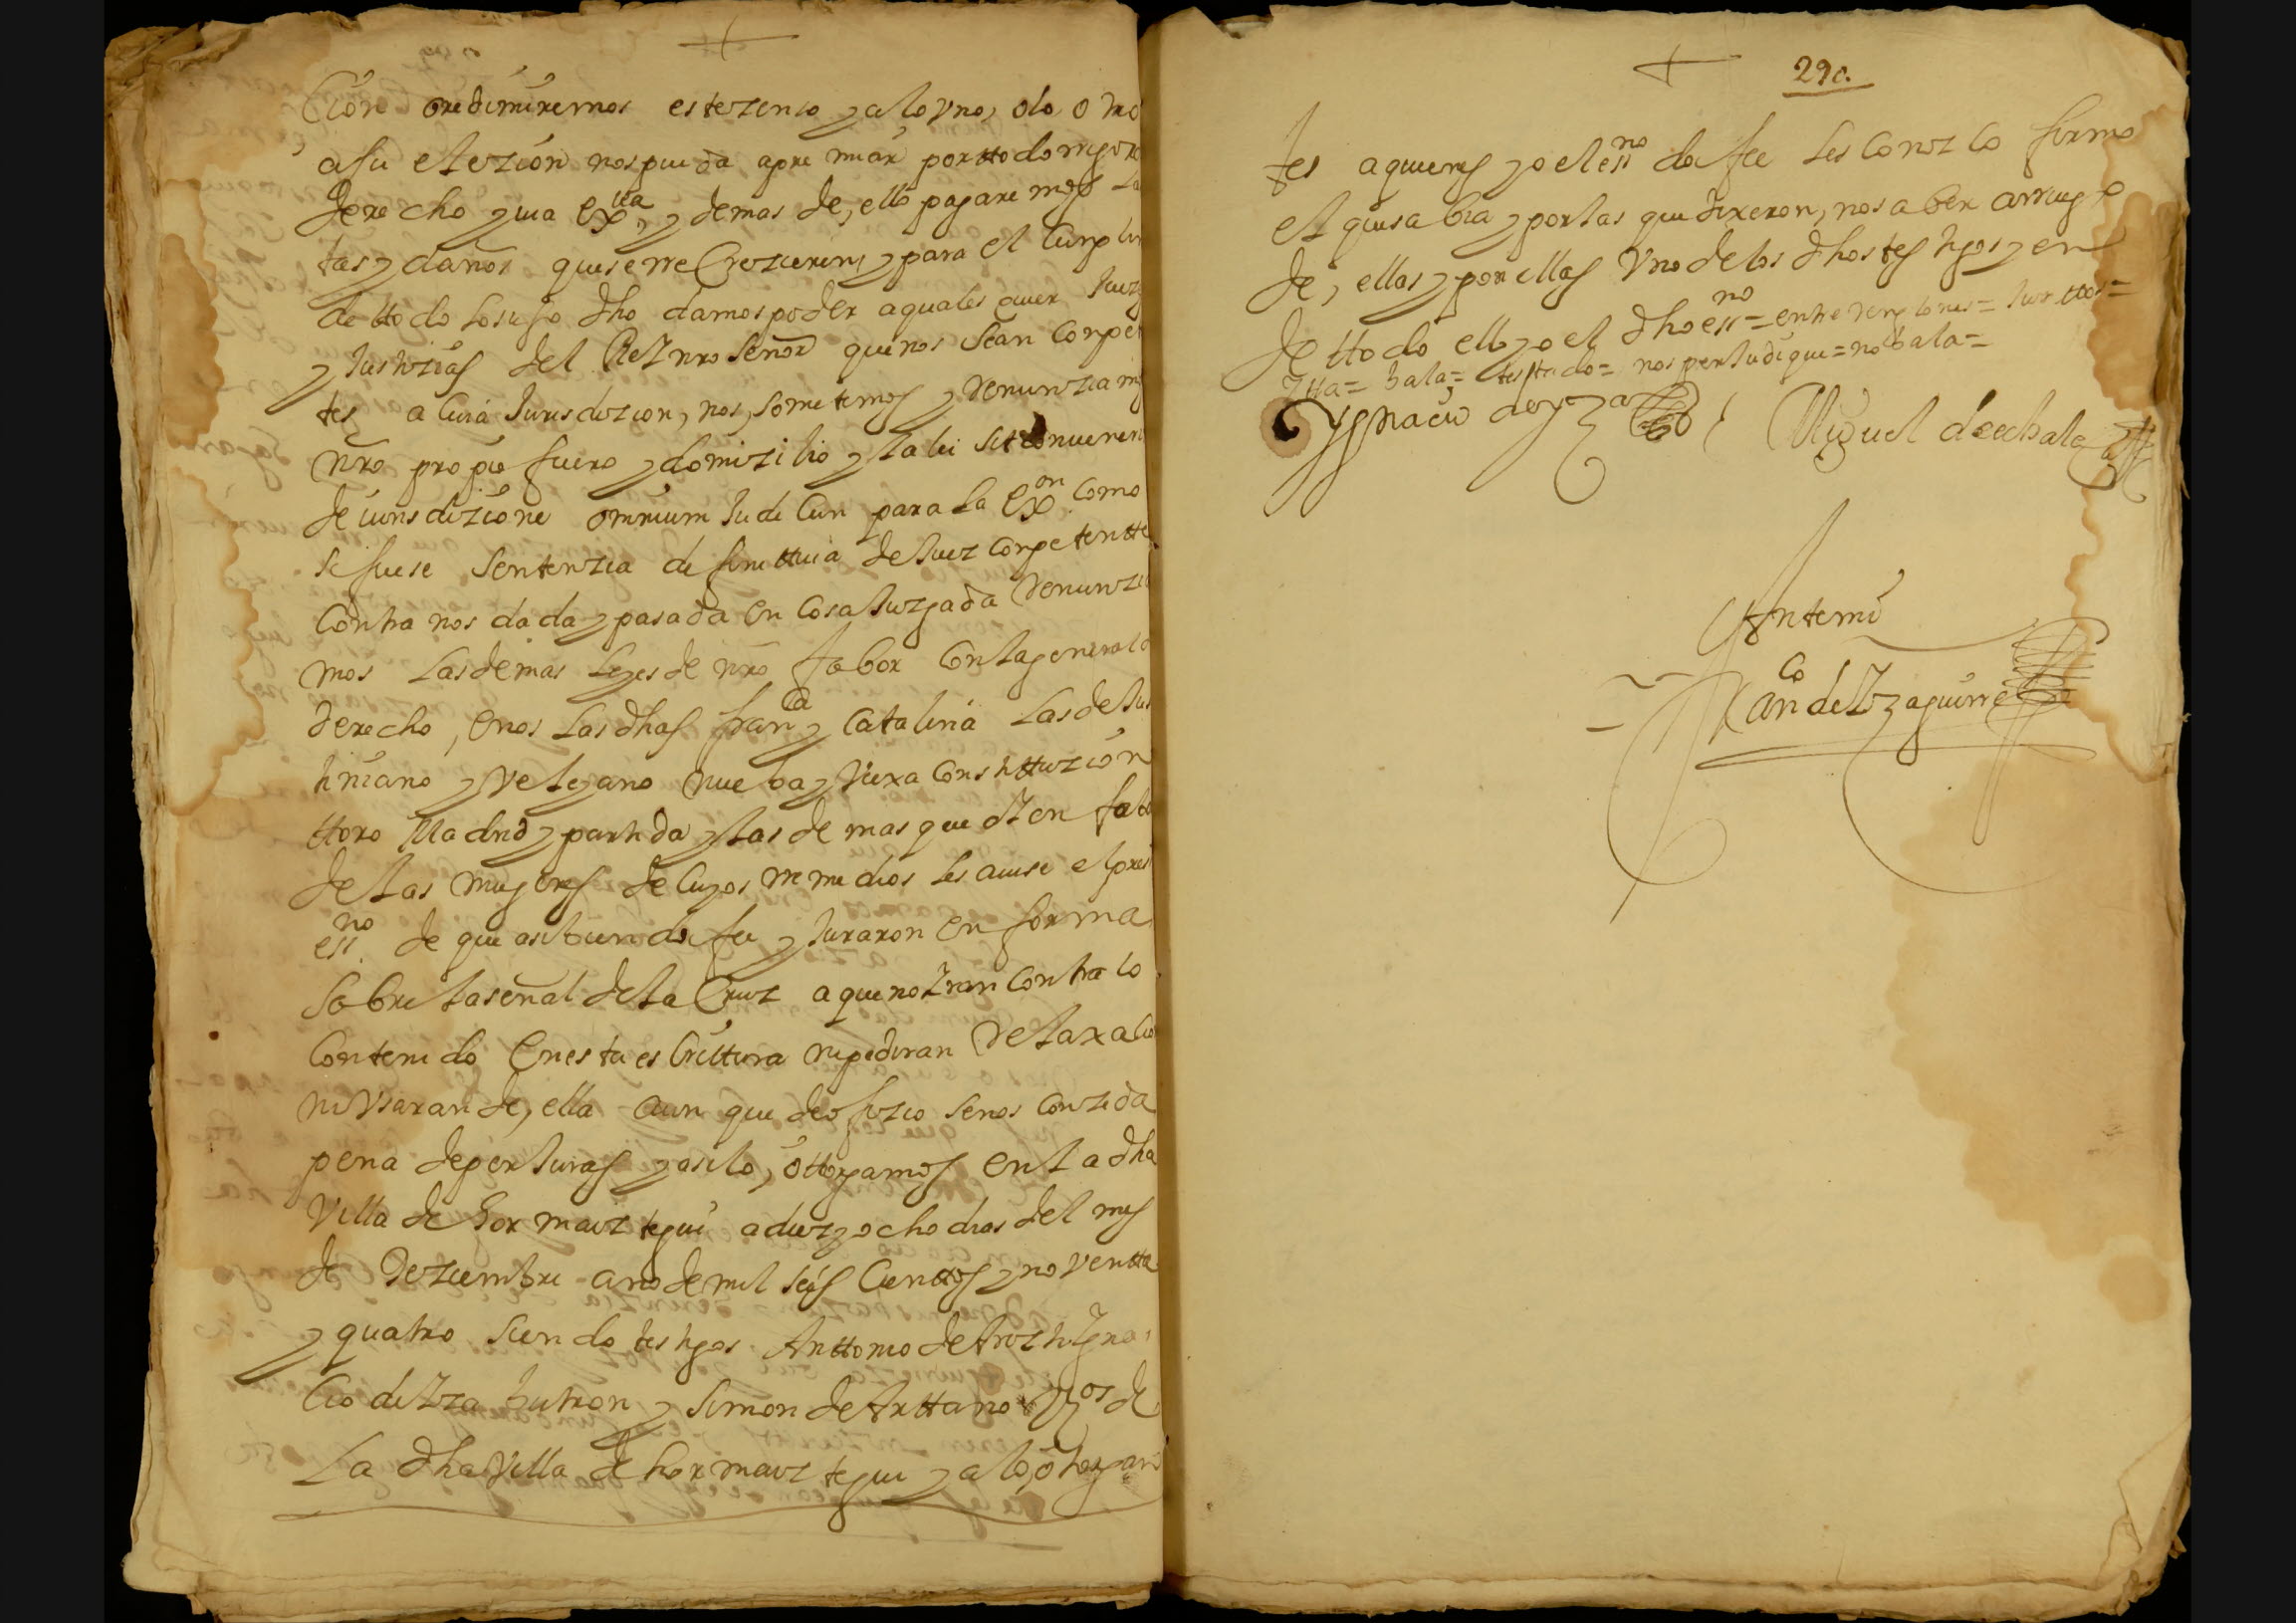 Cion oredimiremos estezenso y alo Vno, olo o tro
asu elezion nospueda apremiar porttodo rrigor
derecho y uia exua, y demas de, ello pagaremos La
tas y daños quese rrecrezieren y para el Cunplim
de ttodo Losuso dho damos poder aquales quier Juez
y Justizias del Rei nro Señor quenos sean Conpe
tes a Cuia Jurisdizion, nos, sometemos y Renunziam
nro propio fuero y domizilio y la lei sit Conuenerit
de iurisdizione omnium Judicun para la exon Como
si fuese Sentenzia difinittiua de Juez Conpetentte
Contra nos dada y pasada en Cosa Juzgada Renunzia
mos Las demas Leyes de nro fabor Con la general d
derecho, e nos Las dhas franca y Catalina Las de Jus
tiniano y Veleyano nueba y Viexa Constittuzion
ttoro Madrid y partida y las demas que son en fab
de las mugeres de Cuyos rremedios les auise el pres
essno de que asi bien doi fee y Juraron en forma
Sobre la señal de la Cruz a que no Iran Contra lo
Contenido en esta escrittura ni pediran Relaxacio
ni Vsaran de, ella aun que de ofizio se nos Conzeda
pena de perJuras y asi lo, ottorgamos en La dha
Villa de hormaiztegui a diez y ocho dias del mes
de Deziembre año de mil seis Cienttos y noventta
y quatro siendo testigos Anttonio de Arozti Igna
Cio de Yza butron y Simon de Arttano Vzos de
La dha Villa de hormaiztegui y a los, otorgan
29c.
tes a quienes yo el essno doi fee Les Conozco firmo
el que sabia y por las que dixeron, no saber arruego
de, ellas y por ellas Vno de los dhos testigos y en
de ttodo ello yo el dho essno = entre renglones = Jur ttos =
ytta = bala = testtado = nos perJudique = no bala =
Ygnacio de Yza
Miguel de echala
Antemi
Franco de Yzaguirre